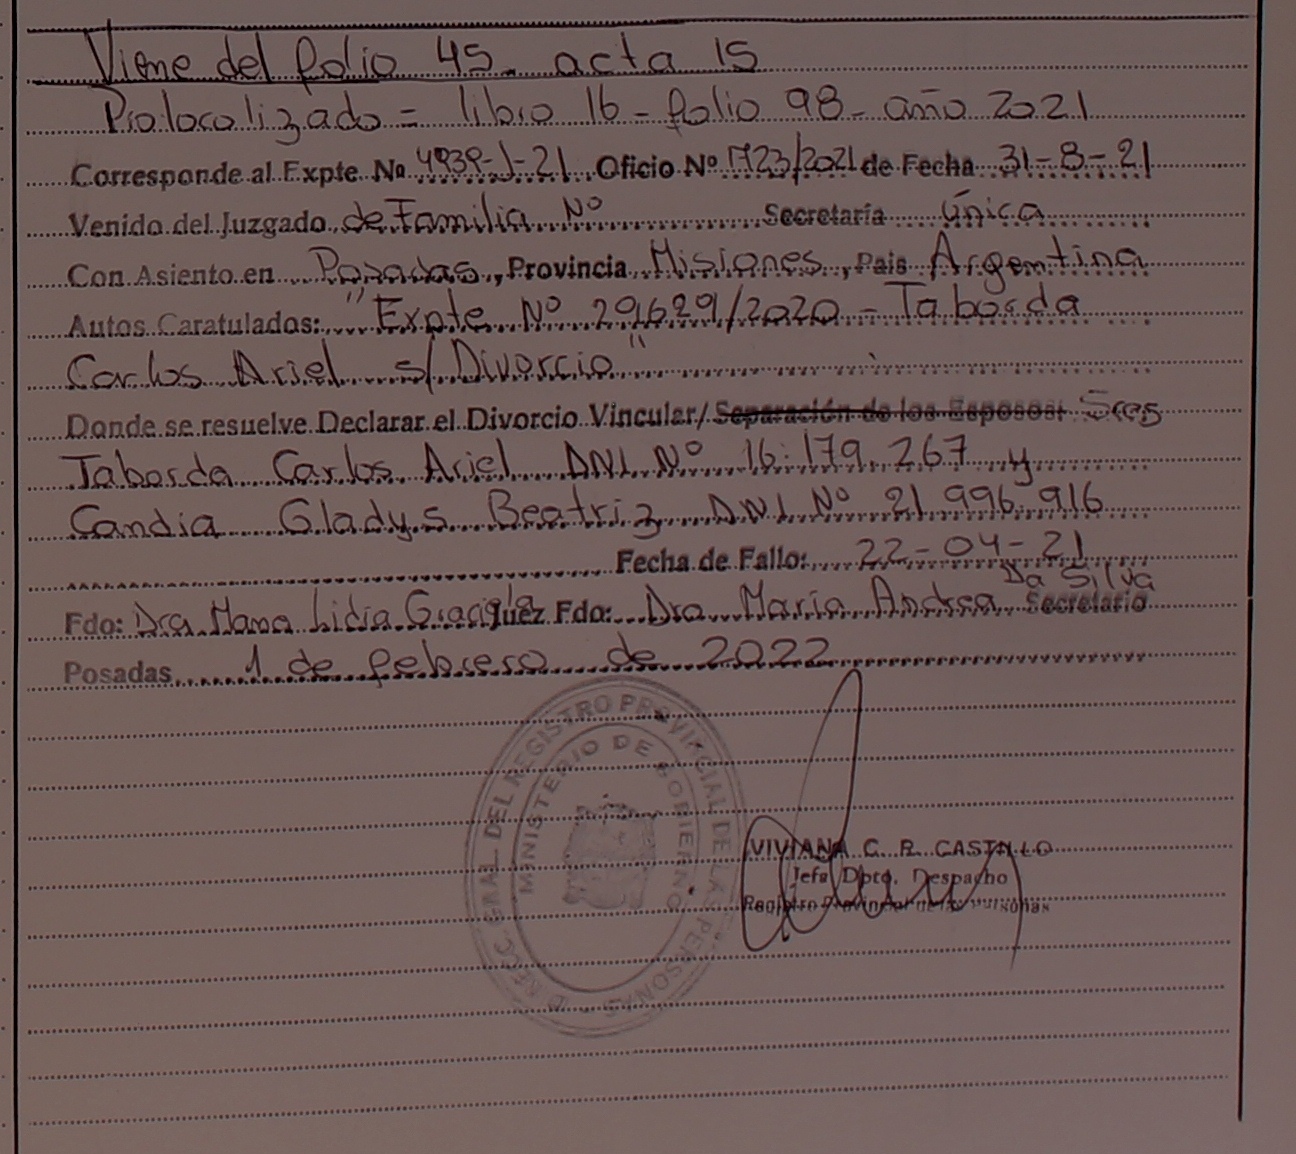 Viene del folio 45 - acta 15
Protocolizado = libro 16 - folio 98 - año 2021
Corresponde al Expte. Nº 4939-J-21 Oficio Nº 1723/2021 de Fecha 31-8-21
Venido del Juzgado de Familia Nº Secretaría única
Con Asiento en Posadas, Provincia Misiones, Pais Argentina
Autos Caratulados: "Expte Nº 29629/2020 - Taborda
Carlos Ariel s/Divorcio"
Donde se resuelve Declarar el Divorcio Vincular/ Separación de los Esposos: Sres
Taborda Carlos Ariel DNI Nº 16.179.267 y
Candia Gladys Beatriz DNI Nº 21.996.916
Fecha de Fallo: 22-04-21
Da Silva
Fdo: Dra Lidia Graciela Juez Fdo: Dra María Andrea Secretario
Posadas, 1 de febrero de 2022
DIRECC. GRAL. DEL REGISTRO PROVINCIAL DE LAS PERSONAS
MINISTERIO DE GOBIERNO
VIVIANA C. R. CASTILLO
Jefa Dpto. Despacho
Registro Provincial de las Personas